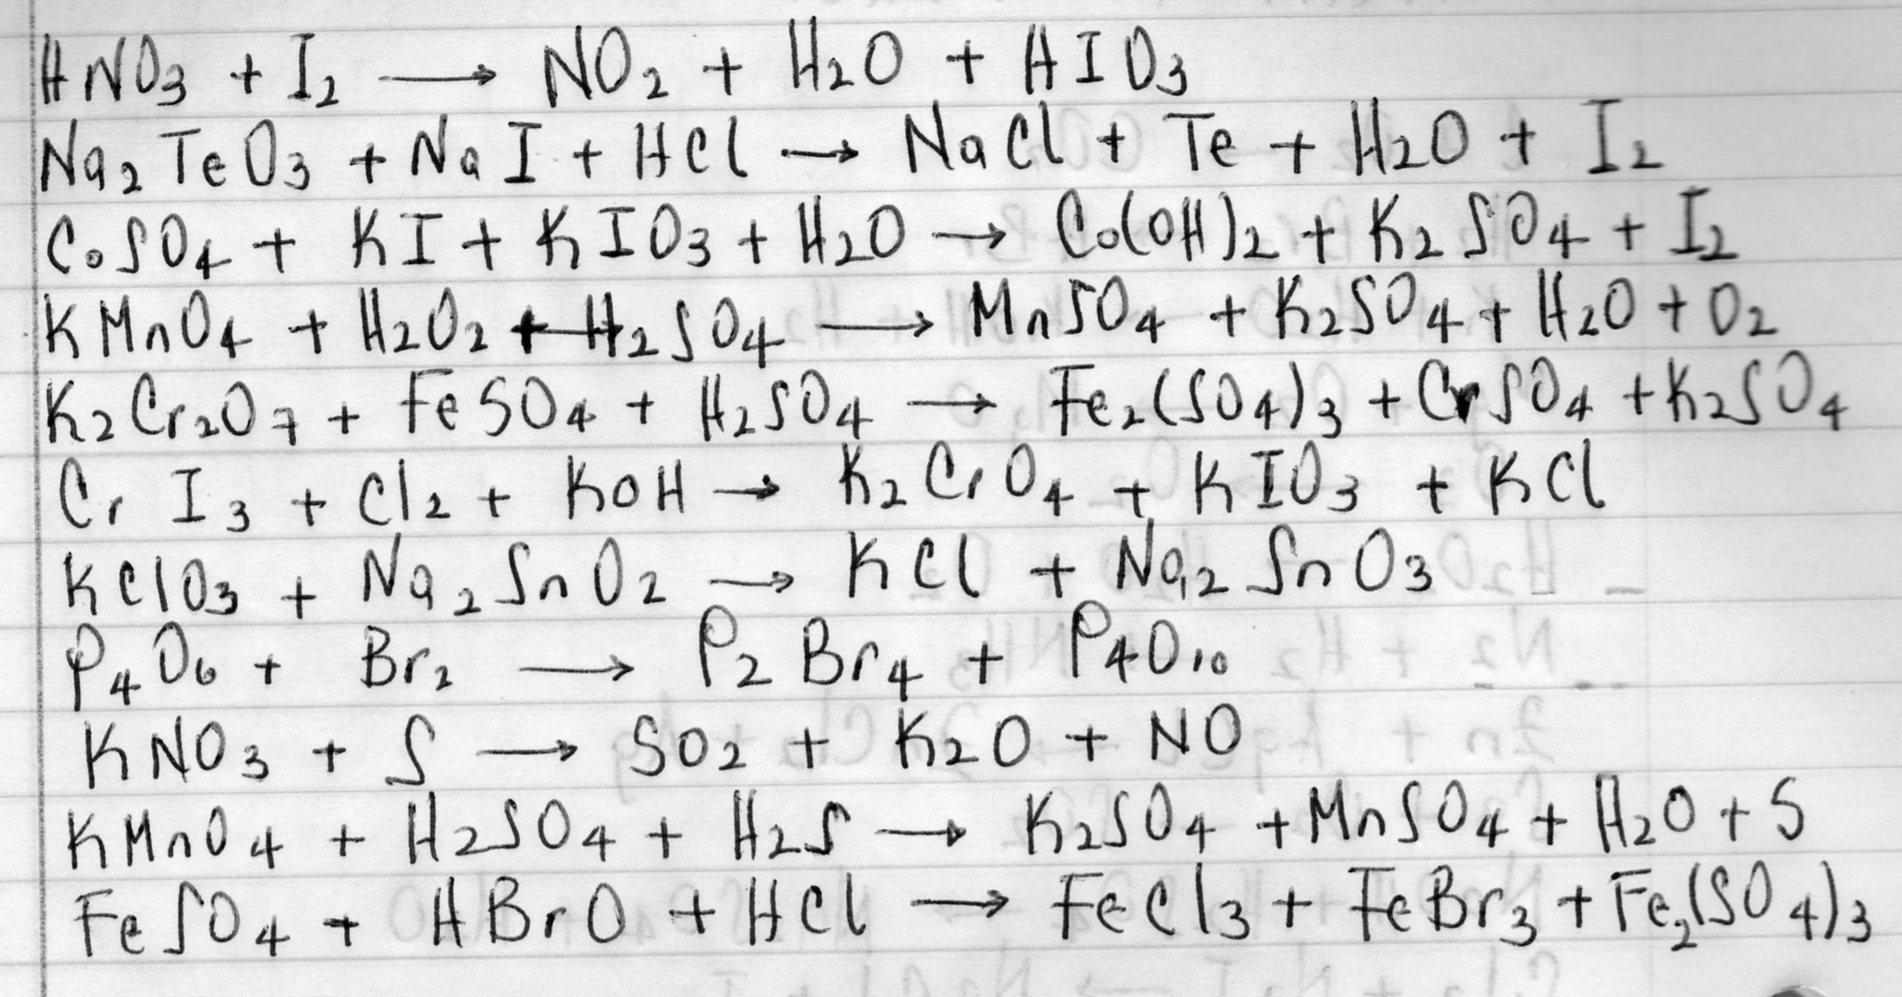 HNO₃ + I₂ ⟶ NO₂ + H₂O + HIO₃
Na₂TeO₃ + NaI + HCl → NaCl + Te + H₂O + I₂
CoSO₄ + KI + KIO₃ + H₂O → Co(OH)₂ + K₂SO₄ + I₂
KMnO₄ + H₂O₂ + H₂SO₄ ⟶ MnSO₄ + K₂SO₄ + H₂O + O₂
K₂Cr₂O₇ + FeSO₄ + H₂SO₄ → Fe₂(SO₄)₃ + CrSO₄ + K₂SO₄
CrI₃ + Cl₂ + KOH → K₂CrO₄ + KIO₃ + KCl
KClO₃ + Na₂SnO₂ → KCl + Na₂SnO₃
P₄O₆ + Br₂ ⟶ P₂Br₄ + P₄O₁₀
KNO₃ + S ⟶ SO₂ + K₂O + NO
KMnO₄ + H₂SO₄ + H₂S → K₂SO₄ + MnSO₄ + H₂O + S
FeSO₄ + HBrO + HCl → FeCl₃ + FeBr₃ + Fe₂(SO₄)₃